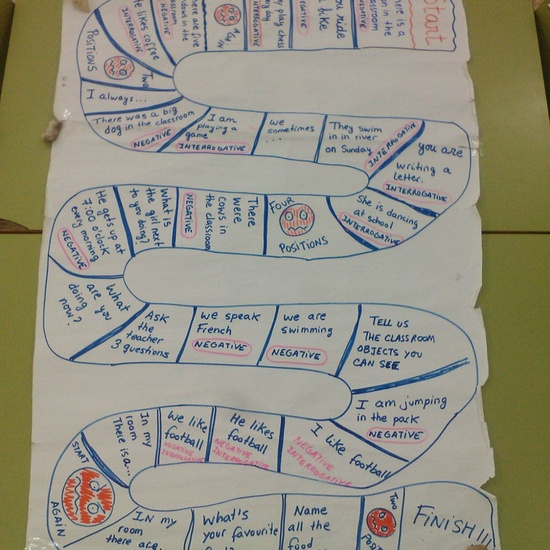 START
There is a
in the
classroom
you ride
bike
play chess
There are five
windows in the
classroom
NEGATIVE
INTERROGATIVE
He likes coffee
NEGATIVE
INTERROGATIVE
TWO
POSITIONS
I always...
There was a big
dog in the classroom
NEGATIVE
I am
playing a
game
INTERROGATIVE
we
sometimes
...
They swim
in in river
on Sunday
INTERROGATIVE
you are
writing a
letter.
INTERROGATIVE
She is dancing
at school
INTERROGATIVE
FOUR
POSITIONS
There
were
cows in
the classroom
NEGATIVE
What is
the girl next
to you doing?
He gets up at
7:00 o'clock
every morning
NEGATIVE
What
are you
doing
now?
Ask
the
teacher
3 questions
we speak
French
NEGATIVE
we are
swimming
NEGATIVE
TELL US
THE CLASSROOM
OBJECTS YOU
CAN SEE
I am jumping
in the park
NEGATIVE
I like football
NEGATIVE
INTERROGATIVE
He likes
football
NEGATIVE
INTERROGATIVE
we like
football
NEGATIVE
INTERROGATIVE
In my
room
There is a...
START
AGAIN
IN my
room
there are
What's
your favourite
Name
all the
food
TWO
FINISH!!!